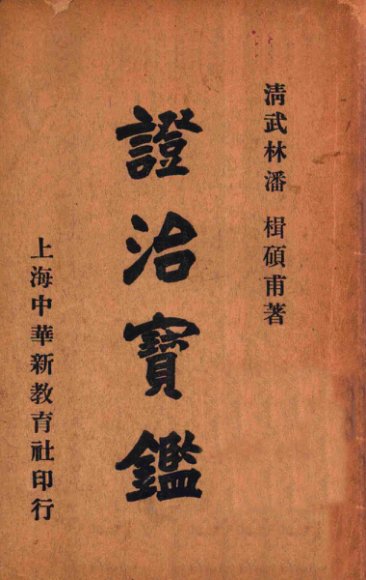 清武林潘 楫碩甫著
證治寶鑑
上海中華新教育社印行